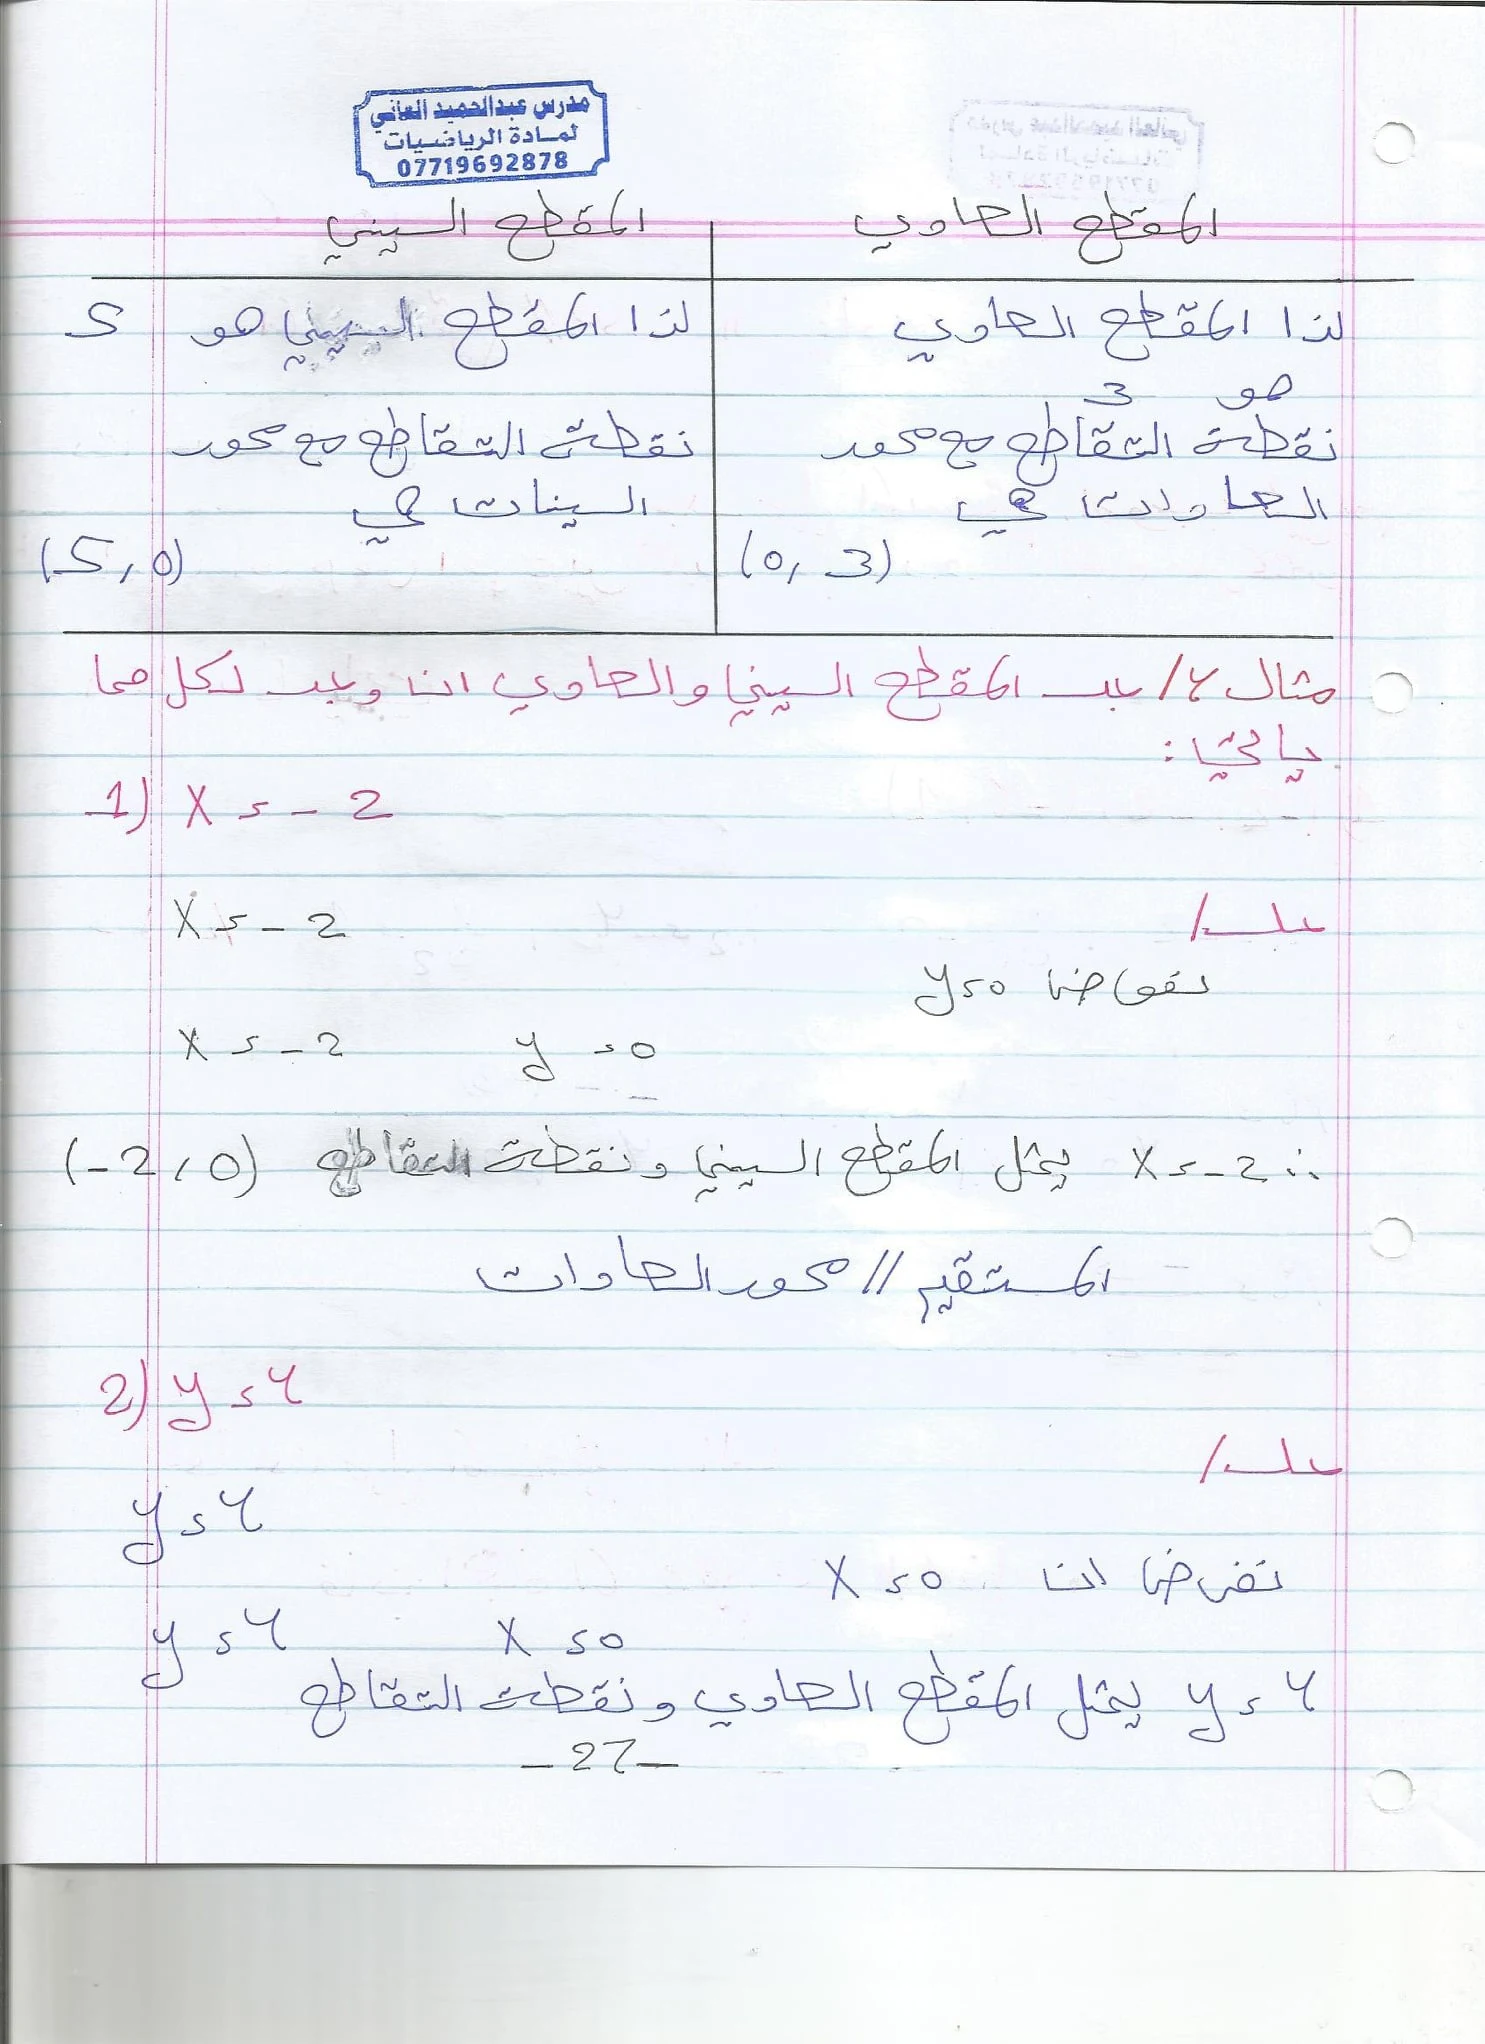 مدرس عبدالحميد العاني
لمادة الرياضيات
07719692878
المقطع الصادي
المقطع السيني
لذا المقطع الصادي
هو 3
نقطة التقاطع مع محور
الصادات هي
(0, 3)
لذا المقطع السيني هو 5
نقطة التقاطع مع محور
السينات هي
(5, 0)
مثال ٤/ جد المقطع السيني والصادي ان وجد لكل مما
يأتي :
1) x = -2
حل/
x = -2
نعوض y=0
x = -2 y = 0
∴ x = -2 يمثل المقطع السيني ونقطة التقاطع (-2, 0)
المستقيم // محور الصادات
2) y = ٤
حل/
y = ٤
نفرض ان x = 0
y = ٤ x = 0
y = ٤ يمثل المقطع الصادي ونقطة التقاطع
- 27 -